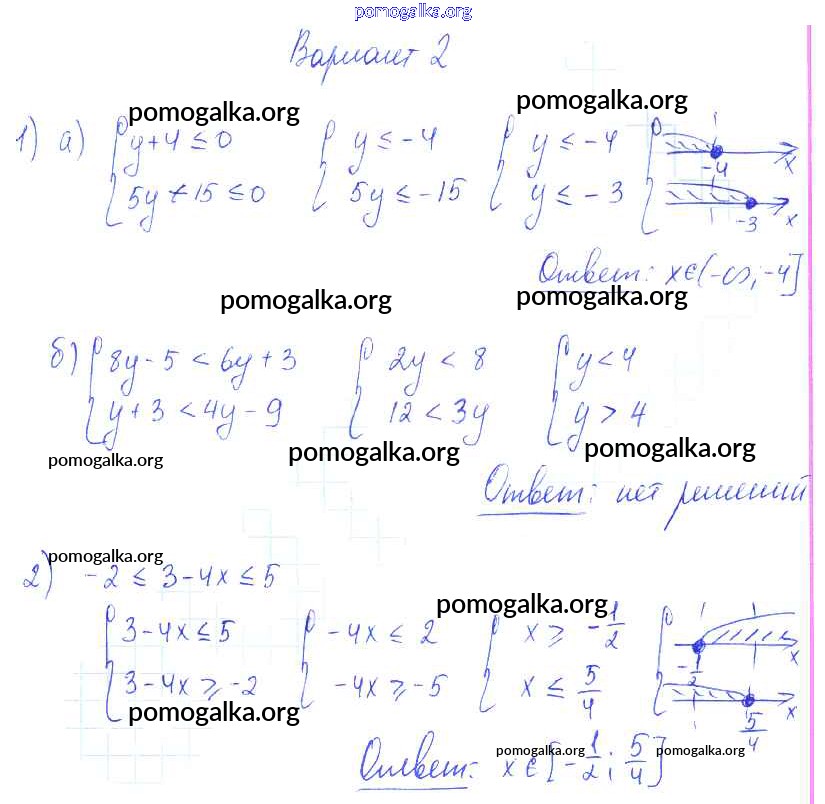 pomogalka.org
Вариант 2
pomogalka.org pomogalka.org
1) а) { y+4 ≤ 0 { y ≤ -4 { y ≤ -4 -4 x
5y+15 ≤ 0 5y ≤ -15 y ≤ -3 -3 x
Ответ: x∈(-∞; -4]
pomogalka.org pomogalka.org
б) { 8y-5 < 6y+3 { 2y < 8 { y < 4
y+3 < 4y-9 12 < 3y y > 4
pomogalka.org pomogalka.org pomogalka.org
Ответ: нет решений
pomogalka.org
2) -2 ≤ 3-4x ≤ 5
pomogalka.org
{ 3-4x ≤ 5 { -4x ≤ 2 { x ≥ -1/2 -1/2 x
3-4x ≥ -2 -4x ≥ -5 x ≤ 5/4 5/4 x
pomogalka.org
Ответ: x∈[-1/2; 5/4]
pomogalka.org pomogalka.org